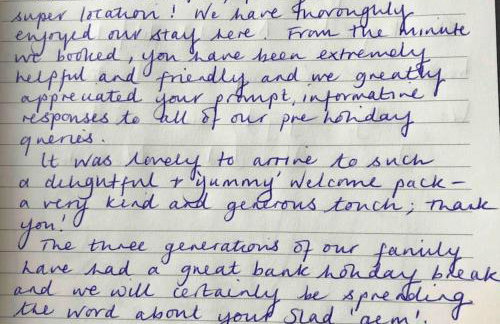 super location! We have thoroughly
enjoyed our stay here. From the minute
we booked, you have been extremely
helpful and friendly and we greatly
appreciated your prompt, informative
responses to all of our pre holiday
queries.
It was lovely to arrive to such
a delightful + 'yummy' welcome pack -
a very kind and generous touch; thank
you!
The three generations of our family
have had a great bank holiday break
and we will certainly be spreading
the word about your Slad 'gem'.